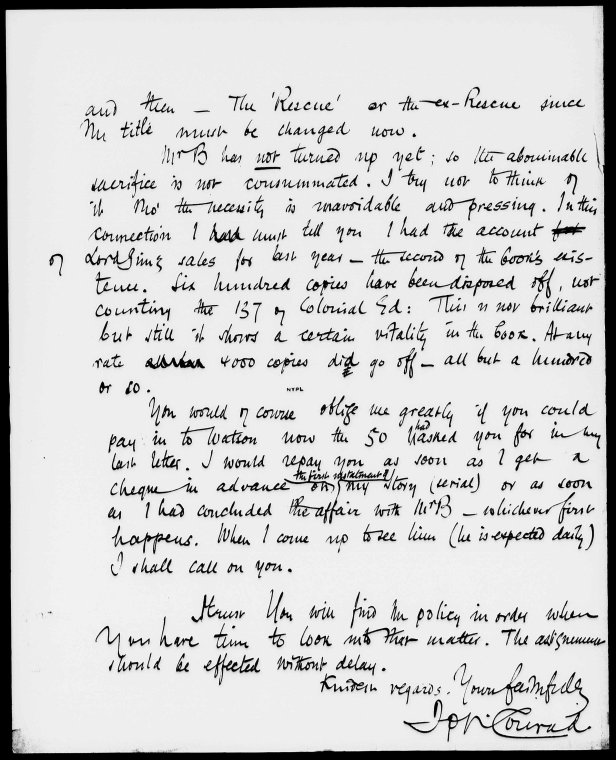 and then — The 'Rescue' or the ex-Rescue since
the title must be changed now.
Mr B has not turned up yet; so the abominable
sacrifice is not consummated. I try not to think of
it tho' the necessity is unavoidable and pressing. In this
connection I had must tell you I had the account for
of Lord Jim's sales for last year — the second of the book's exis-
tence. Six hundred copies have been disposed off, not
counting the 137 of Colonial Ed: This is not brilliant
but still it shows a certain vitality in the book. At any
rate 4000 copies did go off — all but a hundred
or so.
NYPL
You would of course oblige me greatly if you could
pay in to Watson now the 50 I had asked you for in my
last letter. I would repay you as soon as I get a
cheque in advance on the first instalment of my story (serial) or as soon
as I had concluded the affair with Mr B — whichever first
happens. When I come up to see him (he is expected daily)
I shall call on you.
I trust You will find the policy in order when
You have time to look into that matter. The assignement
should be effected without delay.
Kindest regards. Yours faithfully
Jph Conrad